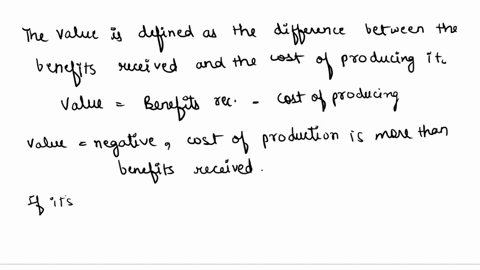 The value is defined as the difference between the
benefits received and the cost of producing it.
Value = Benefits rec. - cost of producing
value = negative, cost of production is more than
benefits received.
If it's